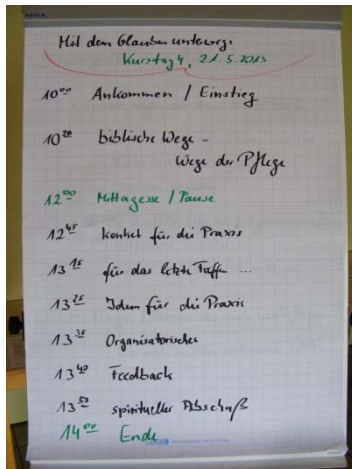 Mit dem Glauben unterwegs
Kurstag 4, 21.5.2013
10⁰⁰ Ankommen / Einstieg
10²⁰ biblische Wege -
Wege der Pflege
12⁰⁰ Mittagesse / Pause
12⁴⁵ konkret für die Praxis
13¹⁵ für das letzte Treffen ...
13²⁵ Ideen für die Praxis
13³⁵ Organisatorisches
13⁴⁰ Feedback
13⁵⁰ spiritueller Abschluß
14⁰⁰ Ende